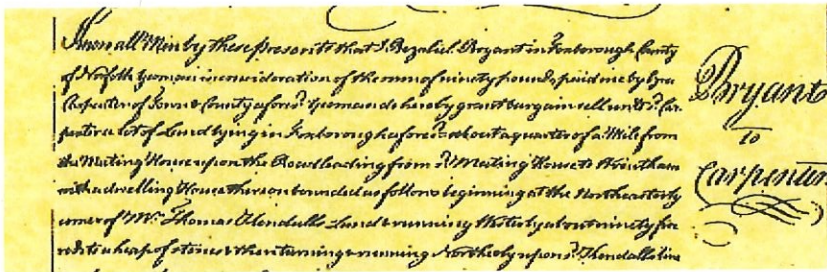 Know all Men by these presents that I Bezaliel Bryant in Foxborough County
of Norfolk Yeoman in consideration of the sum of ninety pounds paid me by Ezra
Carpenter of Town & County afores.d Yeoman do hereby grant bargain sell unto s.d Car
penter a lot of Land lying in Foxborough afores.d about a quarter of a Mile from
the Meeting House upon the Road leading from s.d Meeting House to Wrentham
with a dwelling House thereon bounded as follows beginning at the Northeasterly
corner of Mr. Thomas Clendall's Land & running Westerly about ninety five
rods to a heap of stones & then turning & running Northerly upon s.d line
Bryant
to
Carpenter